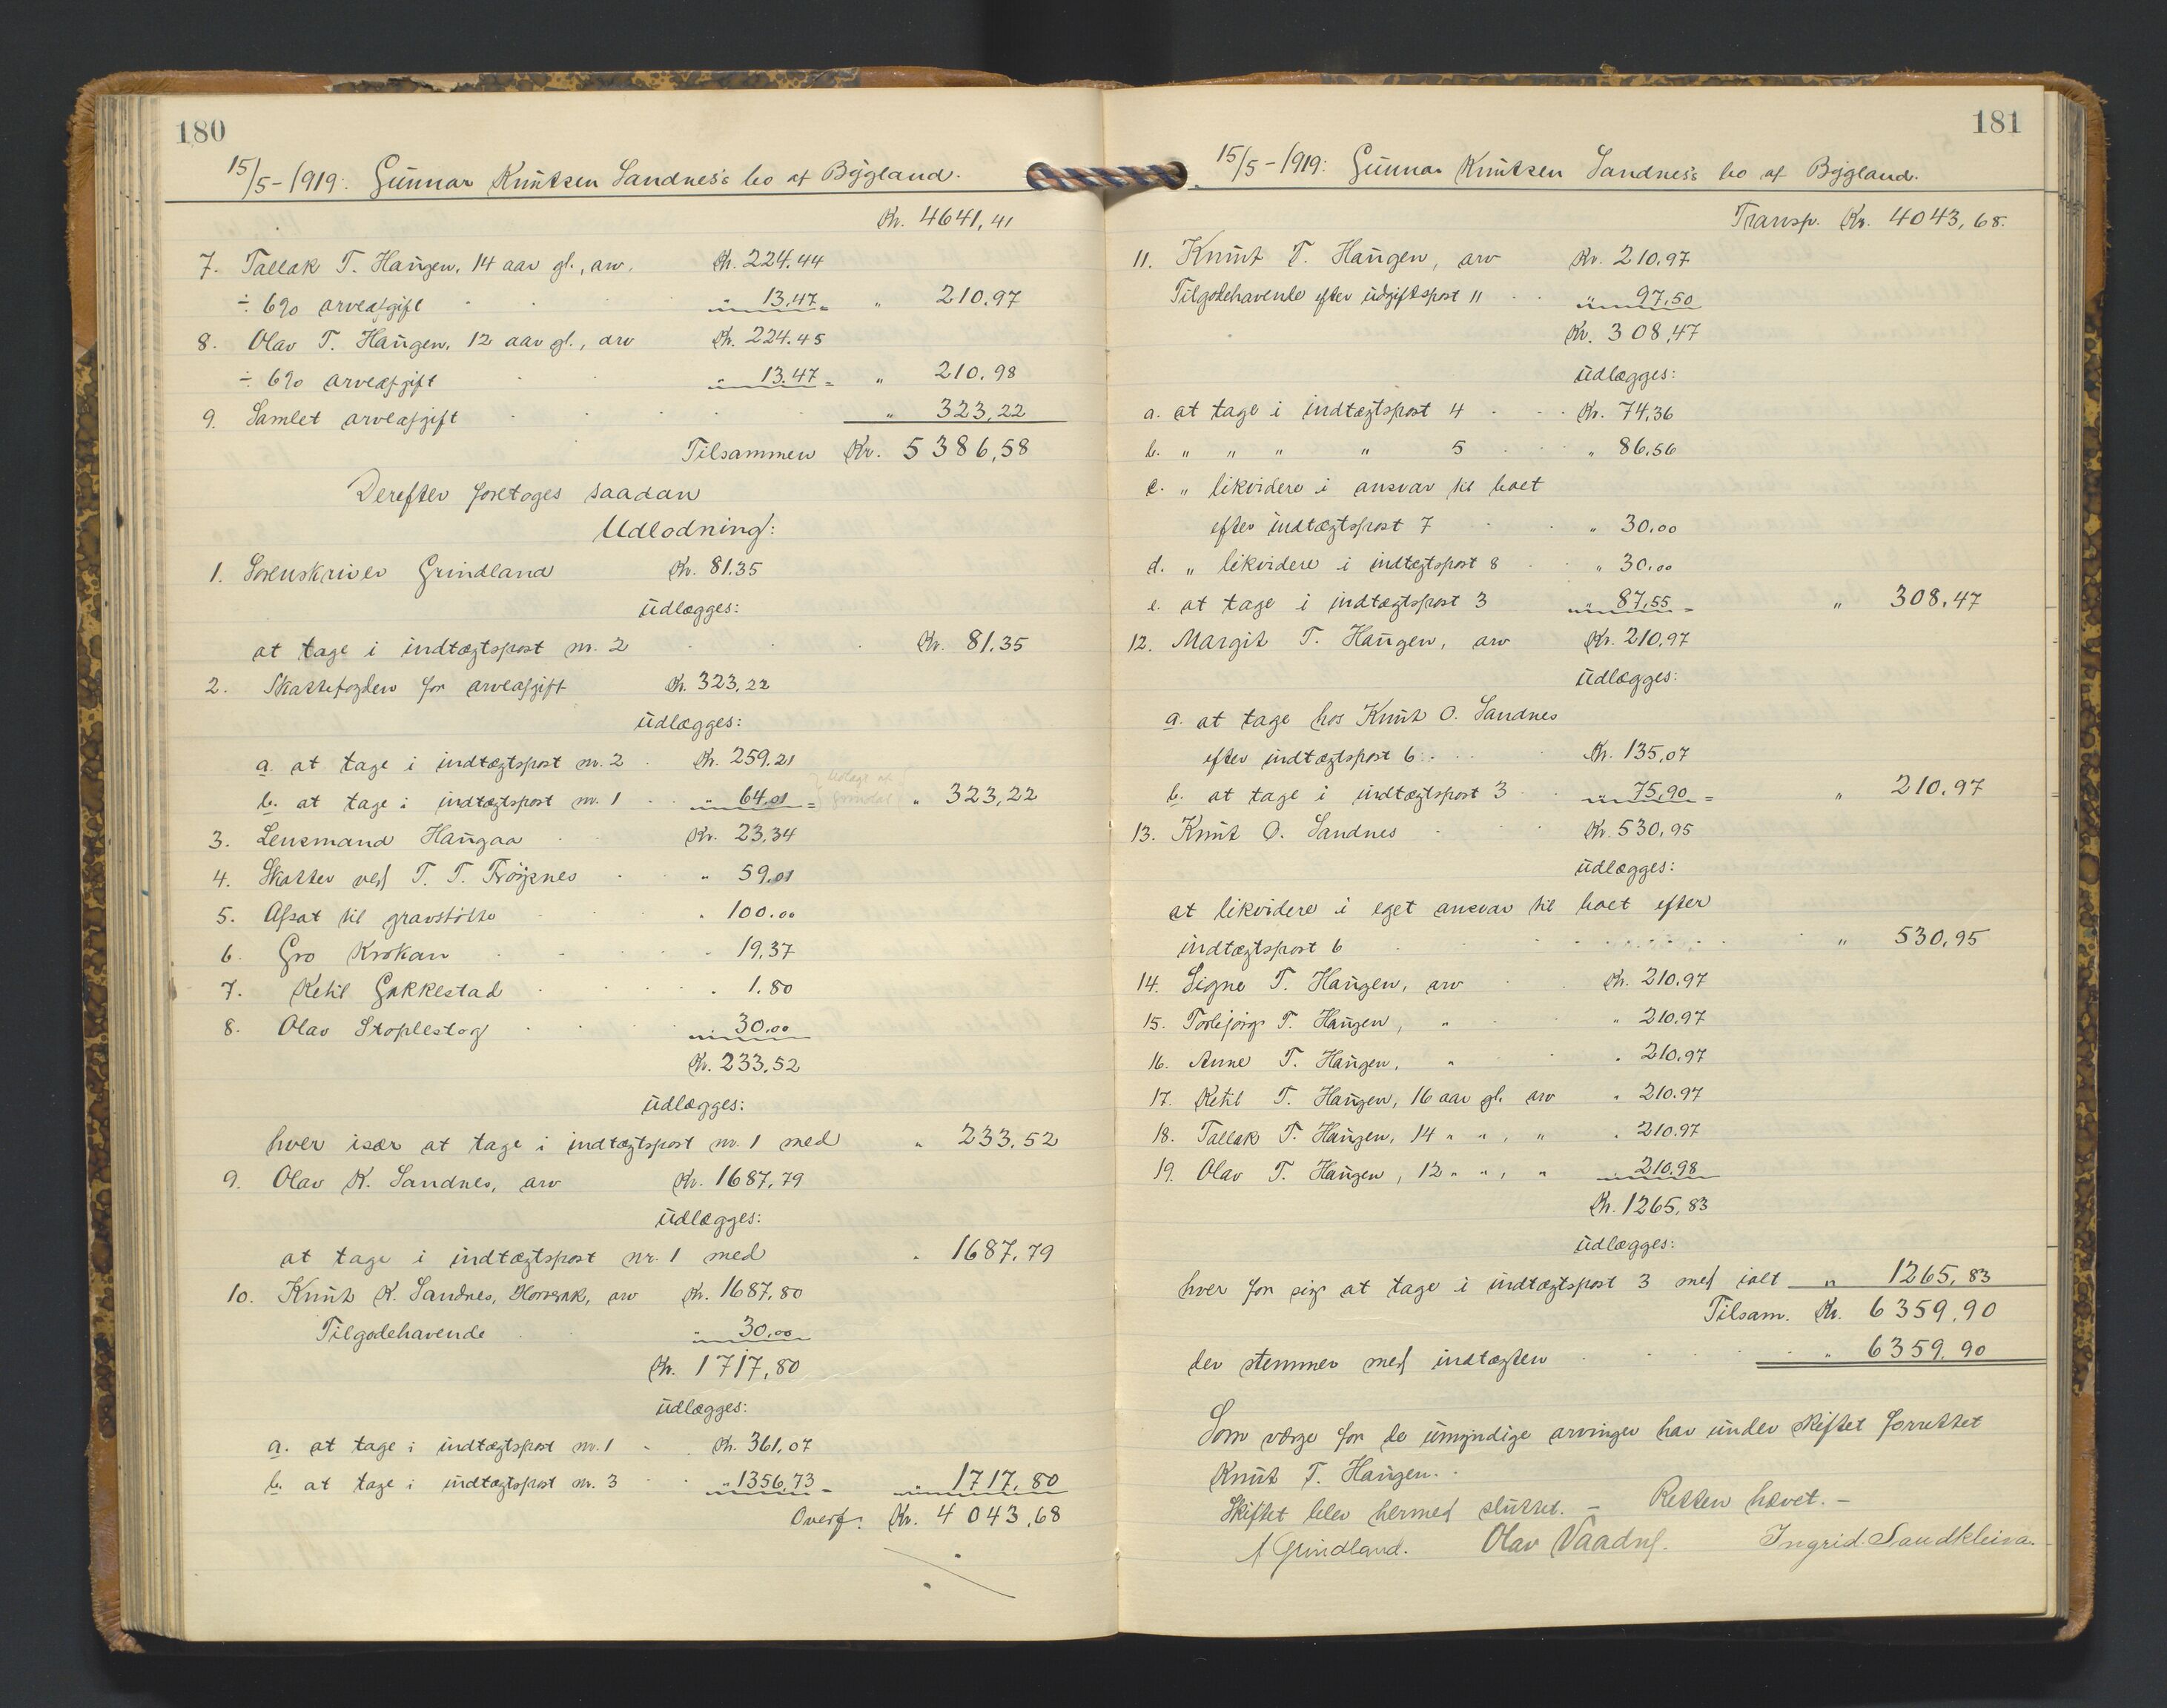 180
15/5-1919: Gunnar Knutsen Sandnes's bo af Bygland.
Kr. 4641,41
7. Tallak T. Haugen, 14 aar gl., arv. Kr. 224.44
÷ 6% arveafgift " 13,47 = " 210.97
8. Olav T. Haugen, 12 aar gl., arv Kr. 224.45
÷ 6% arveafgift " 13.47 = " 210.98
9. Samlet arveafgift " 323,22
Tilsammen Kr. 5386,58
Derefter foretoges saadan
Udlodning:
1. Sorenskriver Grindland Kr. 81.35
udlægges:
at tage i indtægtspost nr. 2 Kr. 81.35
2. Skattefogden for arveafgift Kr. 323,22
udlægges:
a. at tage i indtægtspost nr. 2 Kr. 259.21
b. at tage i indtægtspost nr. 1 " 64,01 = " 323,22
3. Lensmand Haugaa Kr. 23,34
4. Skatter ved T. T. Frøysnes " 59.01
5. Afsat til gravstøtte " 100.00
6. Gro Krokan " 19,37
7. Ketil Gakkestad " 1.80
8. Olav Stoplestog " 30,00
Kr. 233,52
udlægges:
hver især at tage i indtægtspost nr. 1 med " 233,52
9. Olav K. Sandnes, arv Kr. 1687,79
udlægges:
at tage i indtægtspost nr. 1 med " 1687.79
10. Knut K. Sandnes, arv Kr. 1687,80
Tilgodehavende " 30,00
Kr. 1717,80
udlægges:
a. at tage i indtægtspost nr. 1 Kr. 361,07
b. at tage i indtægtspost nr. 3 " 1356,73 = " 1717,80
Overf. Kr. 4043,68
181
15/5-1919: Gunnar Knutsen Sandnes's bo af Bygland.
Transp. Kr. 4043,68.
11. Knut T. Haugen, arv Kr. 210.97
Tilgodehavende efter udgiftspost 11 " 97,50
Kr. 308,47
udlægges:
a. at tage i indtægtspost 4 Kr. 74,36
b. " " " " 5 " 86.56
c. " likvidere i ansvar til boet
efter indtægtspost 7 " 30.00
d. " likvidere i indtægtspost 8 " 30.00
e. at tage i indtægtspost 3 " 87,55 = " 308,47
12. Margit T. Haugen, arv Kr. 210,97
udlægges:
a. at tage hos Knut O. Sandnes
efter indtægtspost 6 Kr. 135,07
b. at tage i indtægtspost 3 " 75,90 = " 210,97
13. Knut O. Sandnes Kr. 530,95
udlægges:
at likvidere i eget ansvar til boet efter
indtægtspost 6 " 530,95
14. Signe T. Haugen, arv Kr. 210,97
15. Torbjørg T. Haugen, " " 210.97
16. Anne T. Haugen, " " 210.97
17. Ketil T. Haugen, 16 aar gl. arv " 210.97
18. Tallak T. Haugen, 14 " ", " " 210.97
19. Olav T. Haugen, 12 " ", " " 210.98
Kr. 1265,83
udlægges:
hver for sig at tage i indtægtspost 3 med ialt " 1265,83
Tilsam. Kr. 6359,90
der stemmer med indtægten " 6359.90
Som værge for de umyndige arvinger har under skiftet forrettet
Knut T. Haugen.
Skiftet blev hermed sluttet. – Retten hævet. –
A Grindland. Olav Vaadnes. Ingrid Sandkleiva.